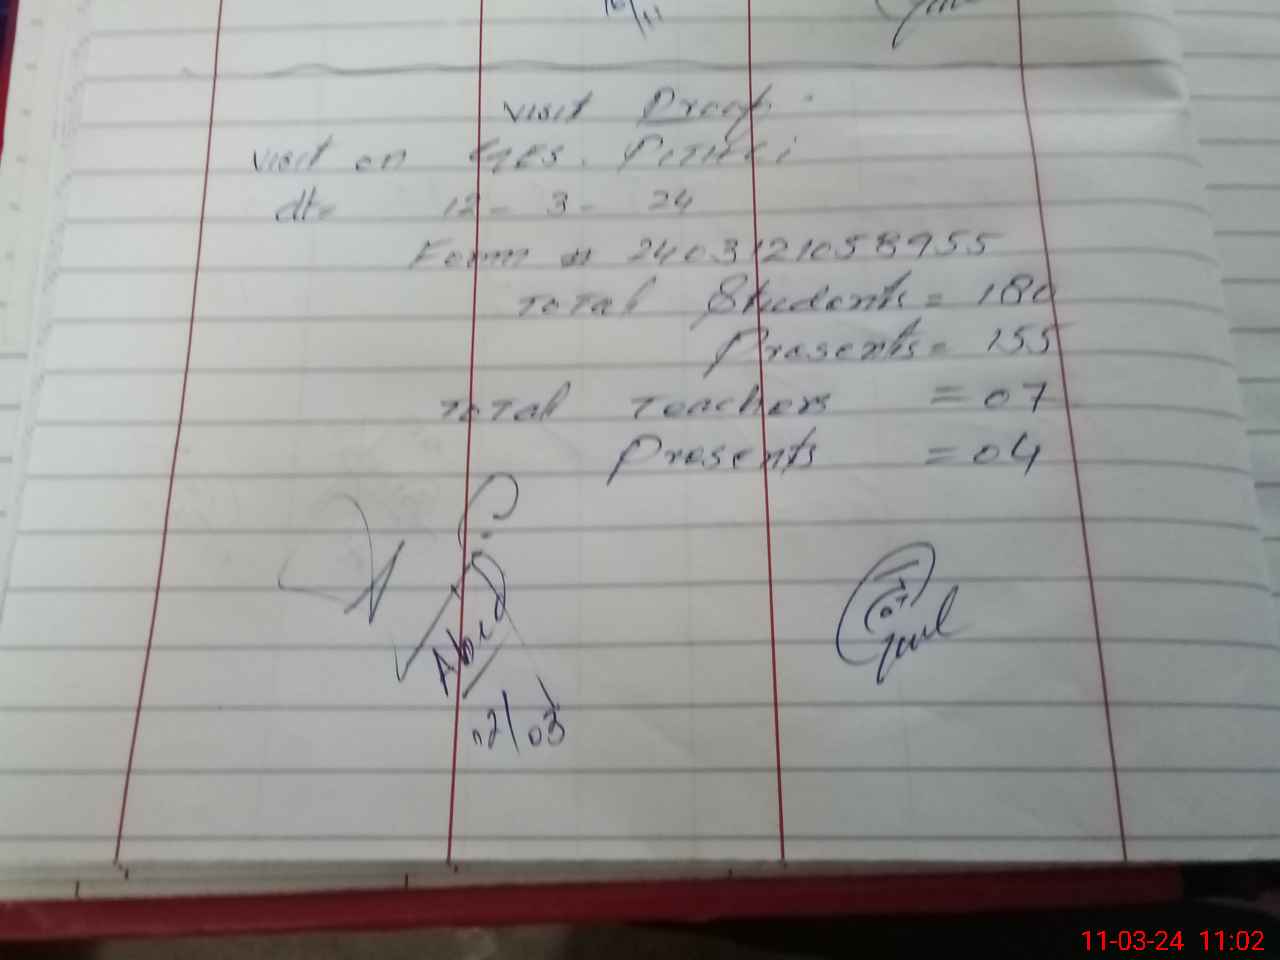 16/11
visit Proof.
visit on GES. Pithli
dt= 12 - 3 - 24
Form # 2403121058955
Total Students = 180
Presents = 155
Total Teachers = 07
Presents = 04
Abid
02/03
11-03-24 11:02